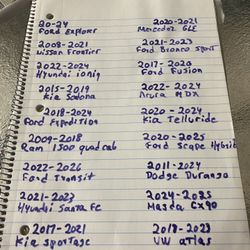 20-24
Ford Explorer
2008-2021
Nissan Frontier
2022-2024
Hyundai ioniq
2015-2019
Kia Sedona
2018-2024
Ford Expedition
2009-2018
Ram 1500 quad cab
2022-2026
Ford Transit
2021-2023
Hyundai Santa FC
2017-2021
Kia Sportage
2020-2021
Mercedez GLE
2021-2023
Ford Bronco Sport
2017-2020
Ford Fusion
2022-2024
Acura MDX
2020-2024
Kia Telluride
2020-2025
Ford Scape Hybrid
2011-2024
Dodge Durango
2024-2025
Mazda CX90
2018-2023
VW atlas